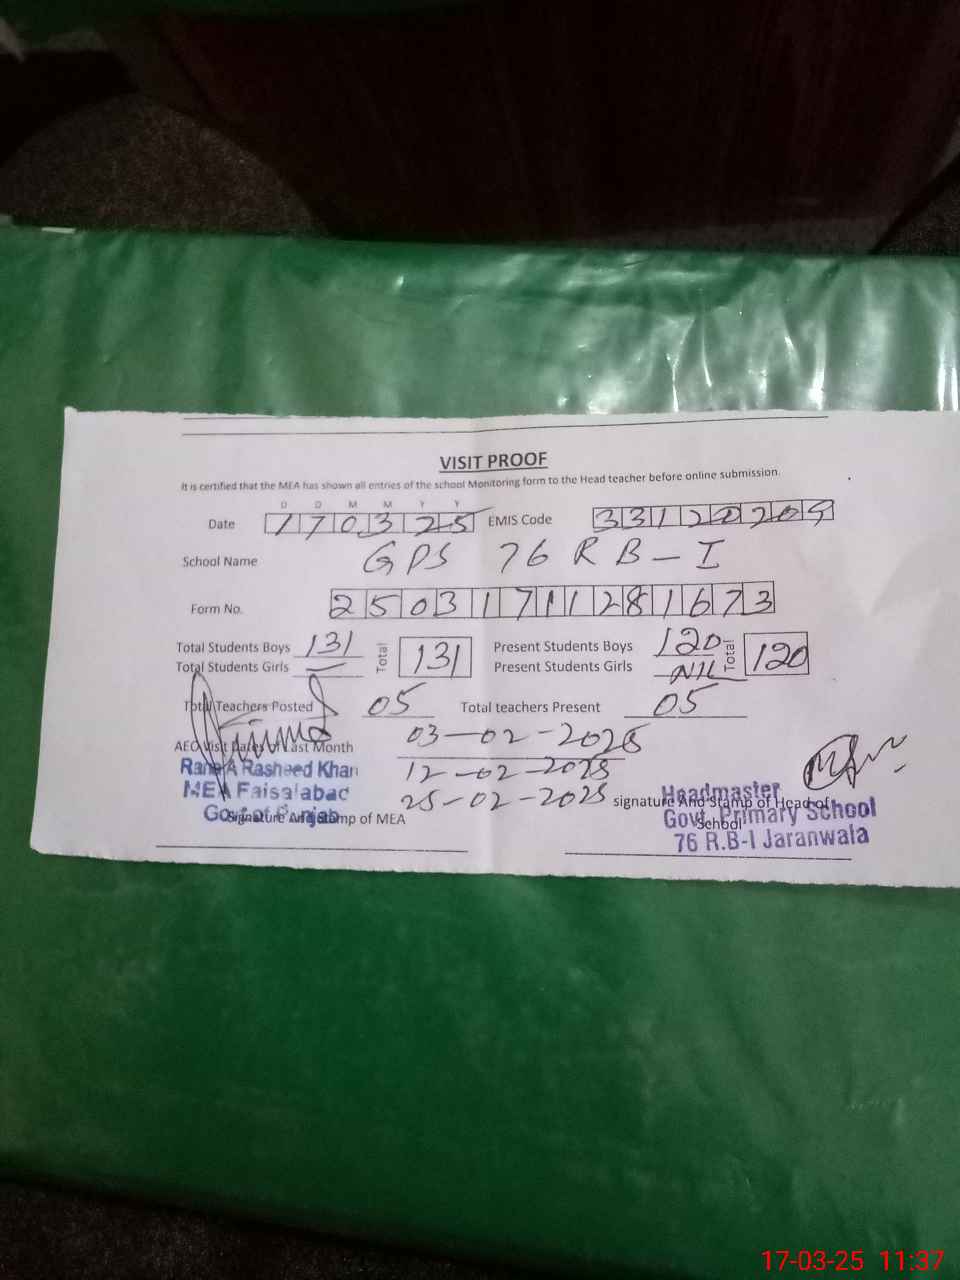 VISIT PROOF
It is certified that the MEA has shown all entries of the school Monitoring form to the Head teacher before online submission.
D D M M Y Y
Date 170325 EMIS Code 33120209
School Name GPS 76 RB-I
Form No. 25031711281673
Total Students Boys 131 Total 131 Present Students Boys 120 Total 120
Total Students Girls — Present Students Girls NIL
Total Teachers Posted 05 Total teachers Present 05
AEO Visit Dates of Last Month 03-02-2025
12-02-2025
25-02-2025
Rana A Rasheed Khan
MEA Faisalabad
Govt of Punjab
Signature And Stamp of MEA
signature And Stamp of Head of School
Headmaster
Govt. Primary School
76 R.B-I Jaranwala
17-03-25 11:37